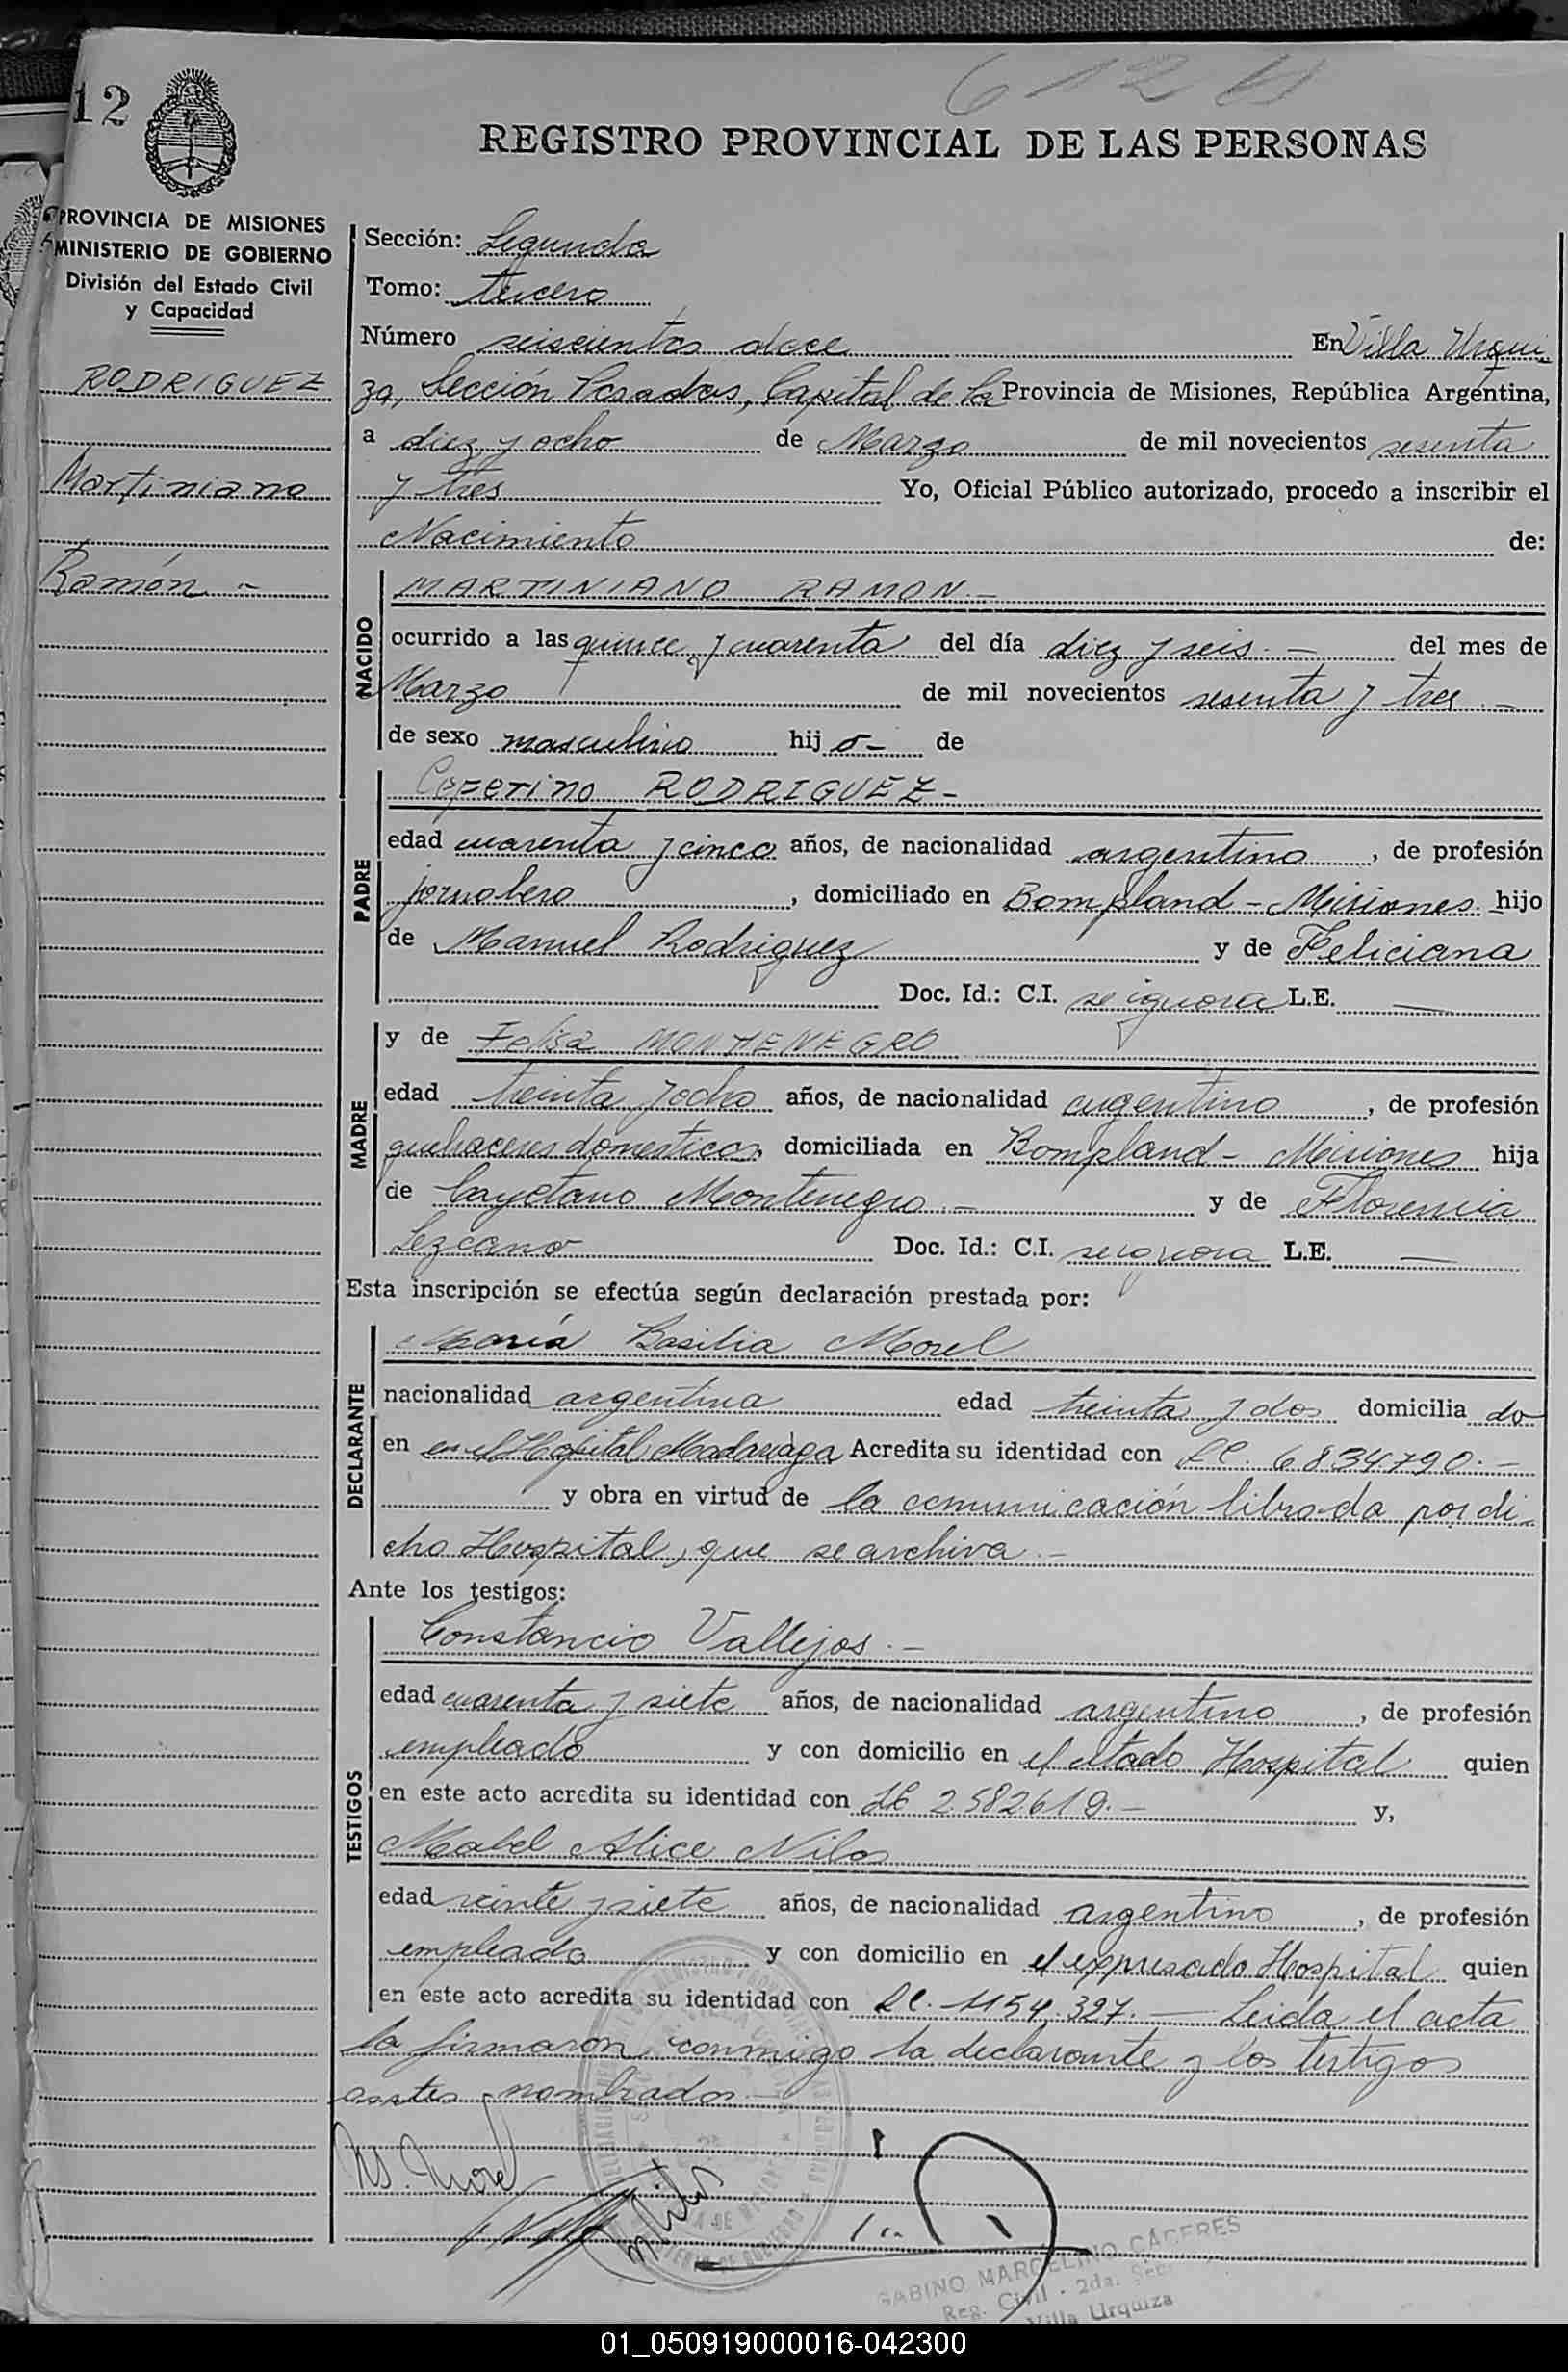 612
12
REGISTRO PROVINCIAL DE LAS PERSONAS
PROVINCIA DE MISIONES
MINISTERIO DE GOBIERNO
División del Estado Civil
y Capacidad
RODRIGUEZ
Martiniano
Ramón -
Sección: Segunda
Tomo: tercero
Número seiscientos doce En Villa Urqui
za, Sección Posadas, Capital de la Provincia de Misiones, República Argentina,
a diez y ocho de Marzo de mil novecientos sesenta
y tres Yo, Oficial Público autorizado, procedo a inscribir el
Nacimiento de:
NACIDO
MARTINIANO RAMON.-
ocurrido a las quince y cuarenta del día diez y seis.- del mes de
Marzo de mil novecientos sesenta y tres.-
de sexo masculino hij o- de
PADRE
Ceferino RODRIGUEZ-
edad cuarenta y cinco años, de nacionalidad argentino, de profesión
jornalero, domiciliado en Bompland - Misiones hijo
de Manuel Rodriguez y de Feliciana
Doc. Id.: C.I. se ignora L.E. —
MADRE
y de Felisa MONTENEGRO
edad treinta y ocho años, de nacionalidad argentino, de profesión
quehaceres domesticos, domiciliada en Bompland - Misiones hija
de Cayetano Montenegro.- y de Florencia
Lezcano Doc. Id.: C.I. se ignora L.E. —
Esta inscripción se efectúa según declaración prestada por:
DECLARANTE
María Basilia Morel
nacionalidad argentina edad treinta y dos domicilia do
en en el Hospital Madariaga Acredita su identidad con LC. 6.834.790.-
y obra en virtud de la comunicación librada por di-
cho Hospital, que se archiva.-
Ante los testigos:
TESTIGOS
Constancio Vallejos.-
edad cuarenta y siete años, de nacionalidad argentino, de profesión
empleado y con domicilio en el citado Hospital quien
en este acto acredita su identidad con LE 2.582.619.- y,
Mabel Alice Nilos
edad veinte y siete años, de nacionalidad argentino, de profesión
empleado y con domicilio en el expresado Hospital quien
en este acto acredita su identidad con LC. 1154.327.- Leida el acta
la firmaron conmigo la declarante y los testigos
antes nombrados.-
M. Morel
GABINO MARCELINO CÁCERES
Reg. Civil - 2da. Sec
Villa Urquiza
01_050919000016-042300